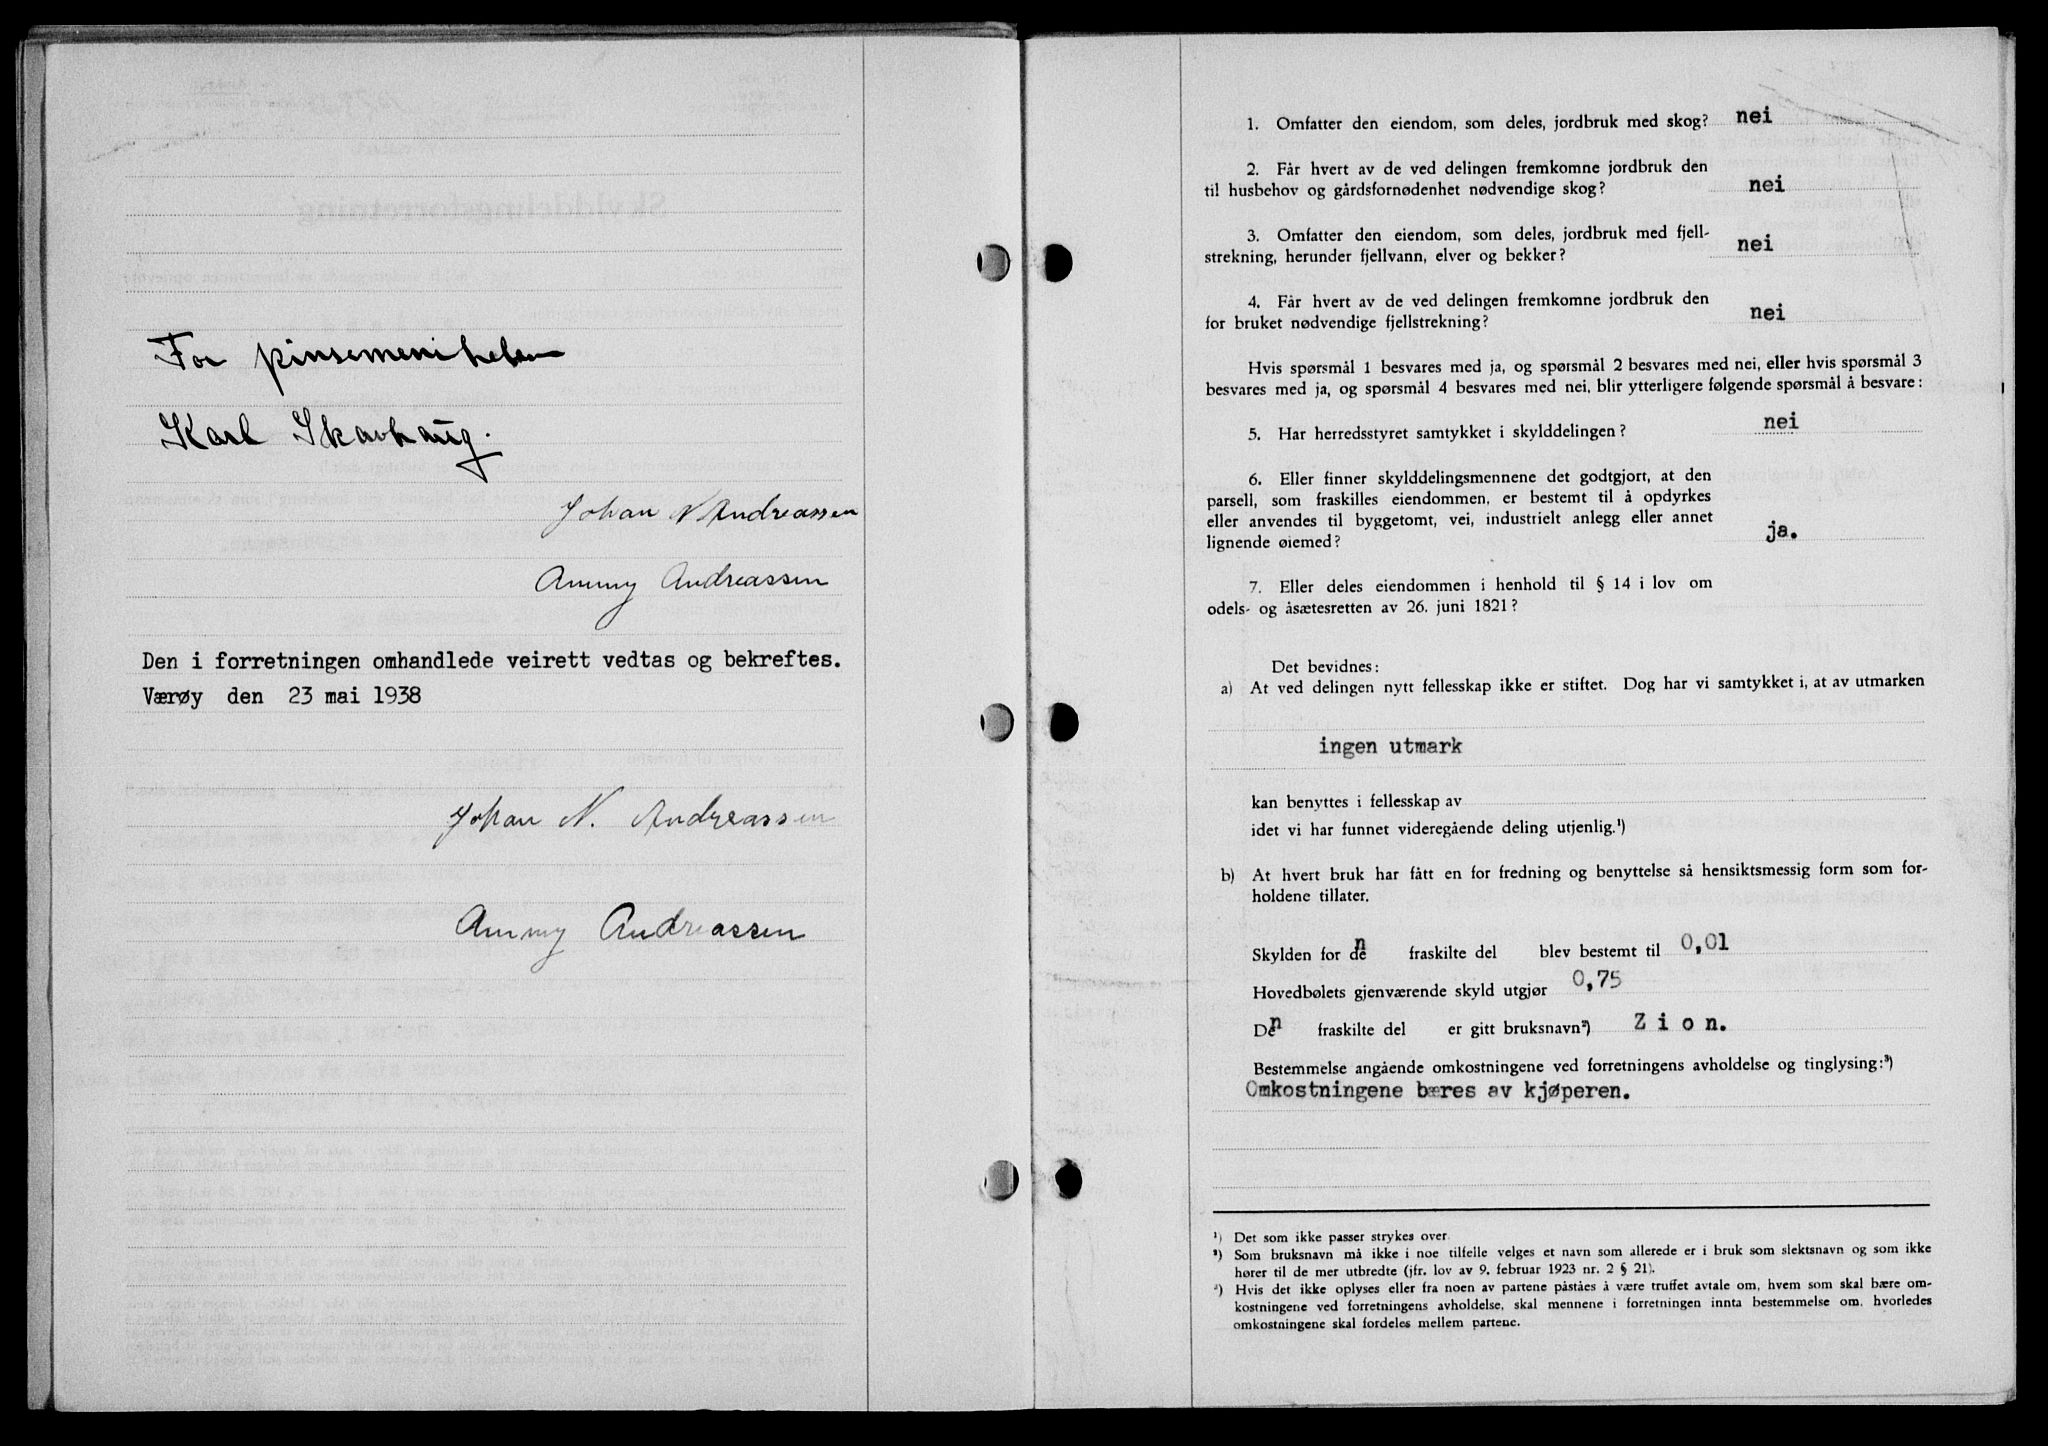 For pinsemenigheten
Karl Skavhaug.
Johan N Andreassen
Ammy Andreassen
Den i forretningen omhandlede veirett vedtas og bekreftes.
Værøy den 23 mai 1938
Johan N. Andreassen
Ammy Andreassen
1. Omfatter den eiendom, som deles, jordbruk med skog? nei
2. Får hvert av de ved delingen fremkomne jordbruk den
til husbehov og gårdsfornødenhet nødvendige skog? nei
3. Omfatter den eiendom, som deles, jordbruk med fjell-
strekning, herunder fjellvann, elver og bekker? nei
4. Får hvert av de ved delingen fremkomne jordbruk den
for bruket nødvendige fjellstrekning? nei
Hvis spørsmål 1 besvares med ja, og spørsmål 2 besvares med nei, eller hvis spørsmål 3
besvares med ja, og spørsmål 4 besvares med nei, blir ytterligere følgende spørsmål å besvare:
5. Har herredsstyret samtykket i skylddelingen? nei
6. Eller finner skylddelingsmennene det godtgjort, at den
parsell, som fraskilles eiendommen, er bestemt til å opdyrkes
eller anvendes til byggetomt, vei, industrielt anlegg eller annet
lignende øiemed? ja.
7. Eller deles eiendommen i henhold til § 14 i lov om
odels- og åsætesretten av 26. juni 1821?
Det bevidnes:
a) At ved delingen nytt fellesskap ikke er stiftet. Dog har vi samtykket i, at av utmarken
ingen utmark
kan benyttes i fellesskap av
idet vi har funnet videregående deling utjenlig.¹)
b) At hvert bruk har fått en for fredning og benyttelse så hensiktsmessig form som for-
holdene tillater.
Skylden for den fraskilte del blev bestemt til 0,01
Hovedbølets gjenværende skyld utgjør 0,75
Den fraskilte del er gitt bruksnavn²) Zion.
Bestemmelse angående omkostningene ved forretningens avholdelse og tinglysing:³)
Omkostningene bæres av kjøperen.
¹) Det som ikke passer strykes over.
²) Som bruksnavn må ikke i noe tilfelle velges et navn som allerede er i bruk som slektsnavn og som ikke
hører til de mer utbredte (jfr. lov av 9. februar 1923 nr. 2 § 21).
³) Hvis det ikke oplyses eller fra noen av partene påståes å være truffet avtale om, hvem som skal bære om-
kostningene ved forretningens avholdelse, skal mennene i forretningen innta bestemmelse om, hvorledes
omkostningene skal fordeles mellem partene.